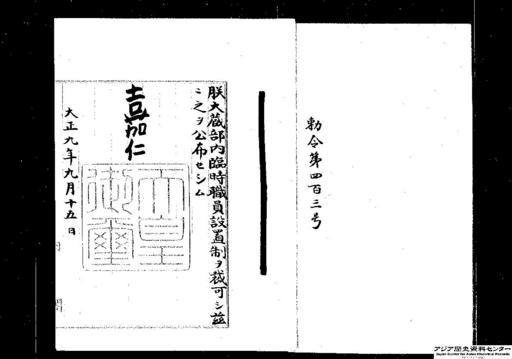 勅令第四百三号
朕大蔵部内臨時職員設置制ヲ裁可シ茲
ニ之ヲ公布セシム
嘉仁
天皇御璽
大正九年九月十五日
アジア歴史資料センター
Japan Center for Asian Historical Records